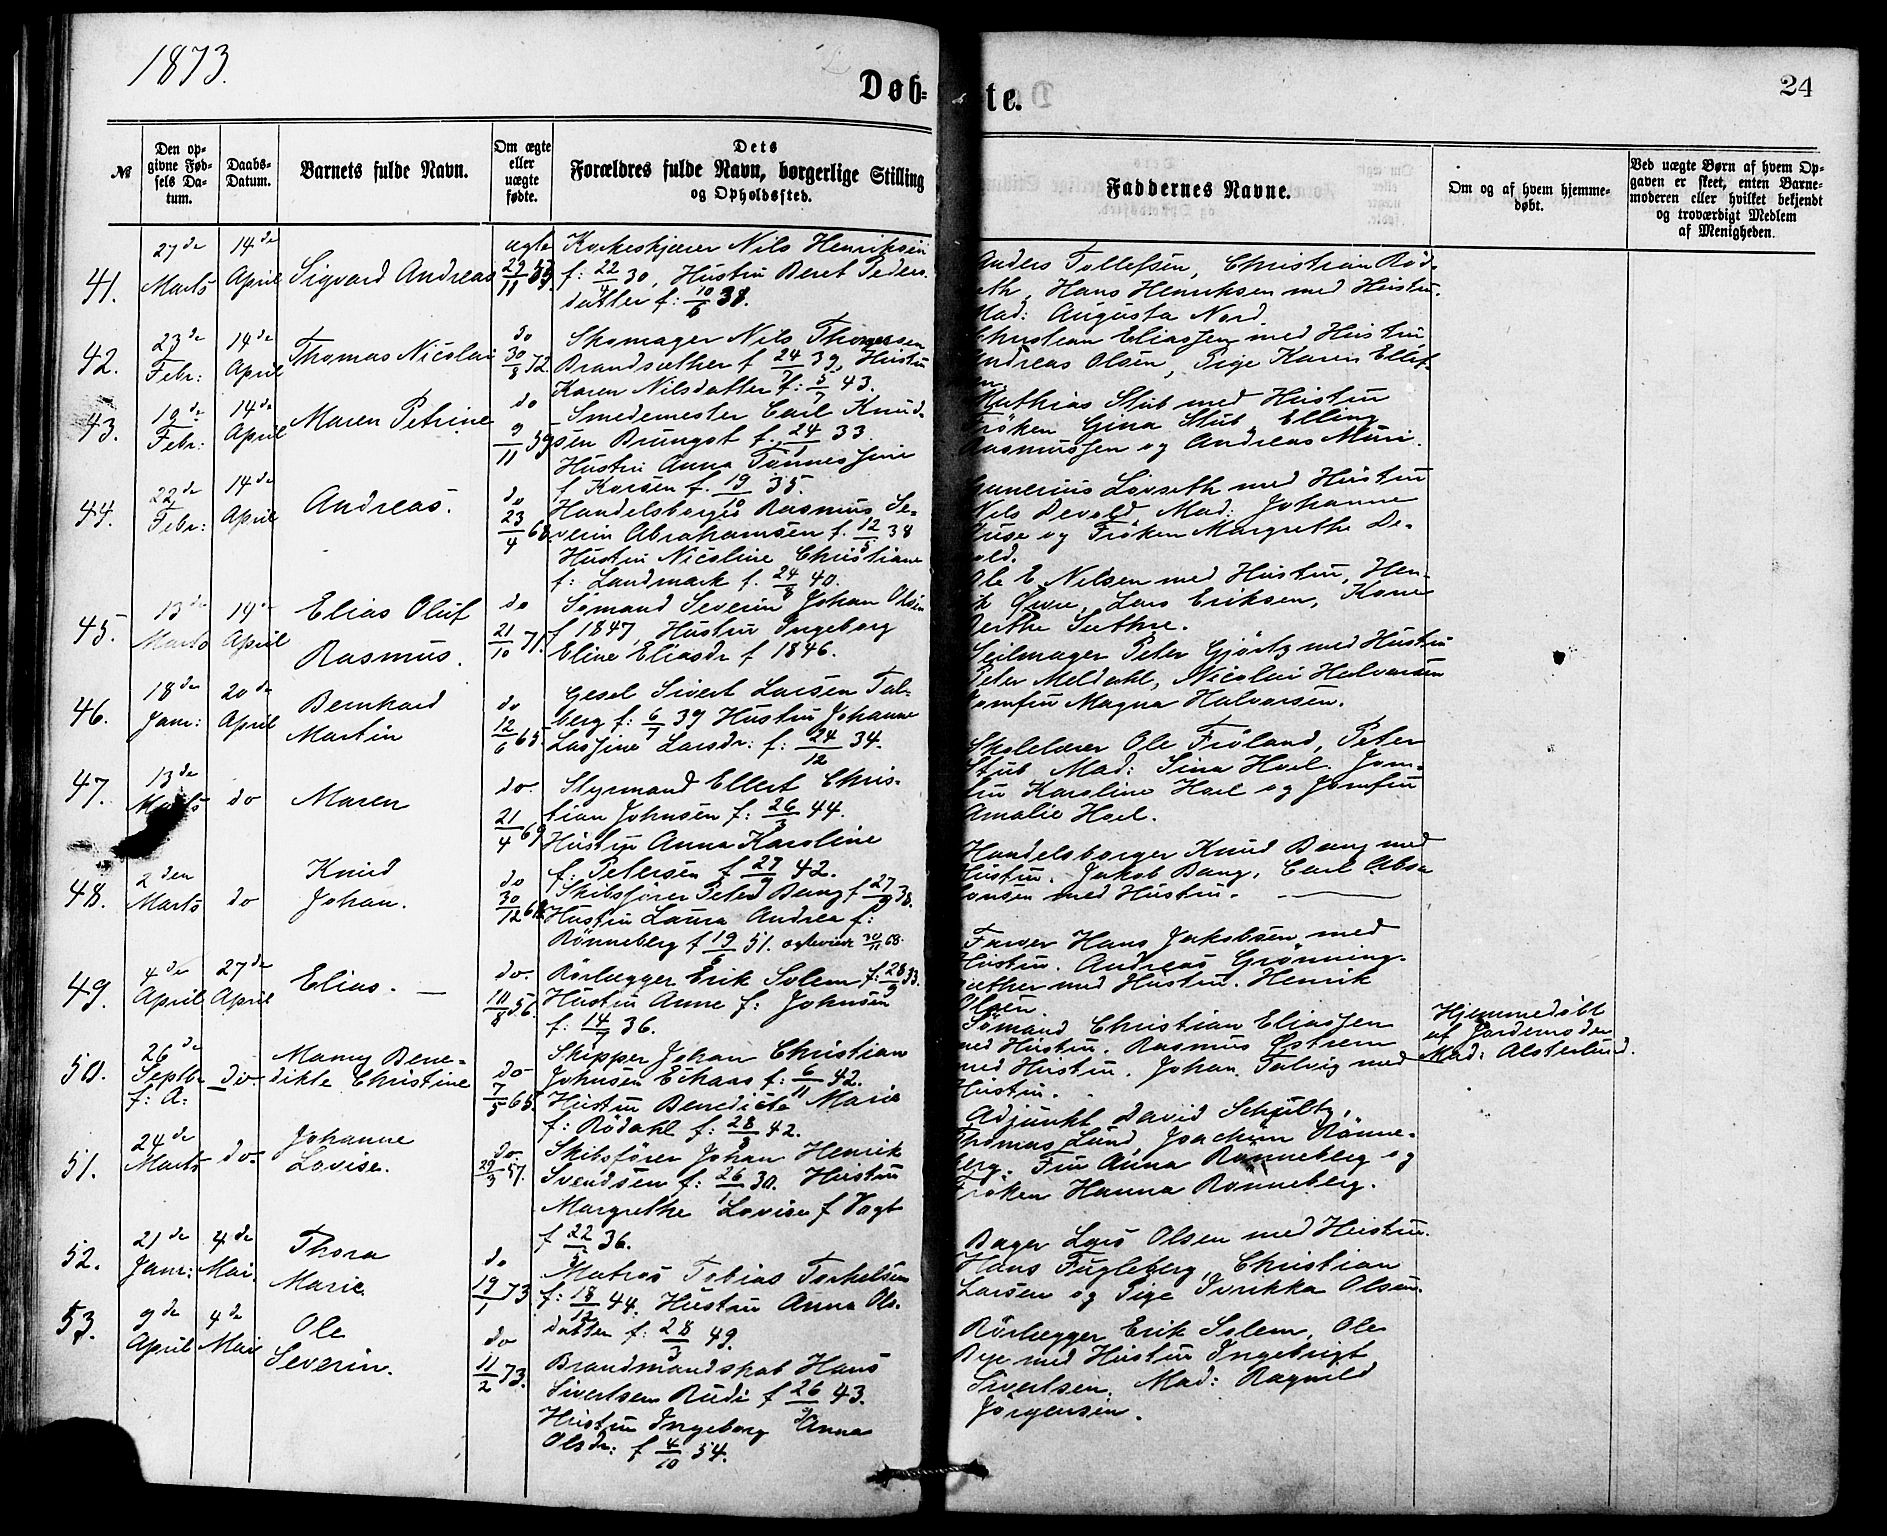 1873.
Døb-
te.
24
№
Den op-
givne Fød-
sels Da-
tum.
Daabs-
Datum.
Barnets fulde Navn.
Om ægte
eller
uægte
fødte.
Dets
Forældres fulde Navn, borgerlige Stilling
og Opholdssted.
Faddernes Navne.
Om og af hvem hjemme-
døbt.
Ved uægte Børn af hvem Op-
gaven er skeet, enten Barne-
moderen eller hvilket bekjendt
og troværdigt Medlem
af Menigheden.
41.
27de
Marts
14de
April
Sigvard Andreas
ægte
29/11
Nils Henriksen
f: 22/4 30, Hustru Beret Peders
datter f: 10/6 38.
Anders Tollefsen, Christian Rød-
eth, Hans Henriksen med Hustru.
Mad: Augusta Nord.
42.
23de
Febr:
14de
April
Thomas Nicolai
do
30/8 72.
Skomager Nils Thomessen
Brandsæther f 24/ 39, Hustru
Karen Nilsdatter f: 5/7 43.
Christian Eliassen med Hustru
Andreas Olsen, Pige Karen Ellef-
sen.
43.
19de
Febr:
14de
April
Maren Petrine
do
9/11 59
Smedemester Carl Knud-
sen Brungot f. 24/1 33.
Hustru Anna Tønnessine
f Korsen f. 19/10 35.
Mathias Stub med Hustru
Frøken Gina Stub, Elling
Rasmussen og Andreas Muri.
44.
22de
Febr:
14de
April
Andreas.
do
23/4 68
Handelsborger Rasmus Se-
verin Abrahamsen f. 12/5 38
Hustru Nicoline Christiane
f: Landmark f. 24/8 40.
Gunerius Løvseth med Hustru
Nils Devold Mad: Johanne
og Frøken Margrethe De-
vold.
45.
13de
Marts
14de
April
Elias Oluf
Rasmus.
do
21/10 71.
Sømand Severin Johan Olsen
f 1847, Hustru Ingeborg
Eline Eliasdr f 1846.
Ole E Nilsen med Hustru, Hen-
k Øvre, Lars Eriksen, Kone
Berthe Sæthre.
46.
18de
Janr:
20de
April
Bernhard
Martin
do
12/6 65.
Gesel Sivert Larsen Tal-
berg f: 6/7 39 Hustru Johanne
Lassine Larsdr: f: 24/12 34.
Seilmager Peter Gjørtz med Hustru
Peter Meldahl, Nicolai Halvorsen
Jomfru Magna Halvorsen.
47.
13de
Marts
do
Maren
do.
21/4 69
Styrmand Ellert Chris-
tian Johnsen f: 26/3 44.
Hustru Anna Karoline
f: Petersen f 27/ 42.
Skolelærer Ole Frøland, Peter
Stub, Mad: Sina Hoel. Jom-
fru Karoline Hoel og Jomfru
Amalie Hoel.
48.
2den
Marts
do
Knud
Johan.
do
30/12 68
Skibsfører Peter Bang f 27/9 38.
Hustru Laura Andrea f:
Rønneberg f 19/8 51.
Handelsborger Knud Bang med
Hustru. Jakob Bang, Carl Absa
lonsen med Hustru.
49.
4de
April
27de
April
Elias.
do.
10/8 56.
Rørlægger Erik Solem f: 28/9 33.
Hustru Anne f: Johnsen
f: 14/7 36.
Farver Hans Jakobsen med
Hustru. Andreas Grønning-
sæther med Hustru. Henrik
Olsen.
50.
26de
Septb
f: A:
do
Maney Bene-
dikte Christine
do
7/5 65.
Skipper Johan Christian
Johnsen Ekaas f: 6/11 42.
Hustru Benedicte Marie
f: Rødahl f: 28/8 42.
Sømand Christian Eliassen
med Hustru. Rasmus Østrem
med Hustru. Johan Talvig med
Hustru.
Hjemmedøbt
af Jordemoder
Mad: Alsterlund.
51.
24de
Marts
do.
Johanne
Lovise.
do
29/3 57.
Skibsfører Johan Henrik
Svendsen f: 26/1 30. Hustru
Margrethe Lovise f Vogt
f 22/5 36.
Adjunkt David Schultz,
Thomas Lund, Joachim Rønne-
berg. Fru Anna Rønneberg og
Frøken Hanna Rønneberg.
52.
21de
Janr:
4de
Mai.
Thora
Marie
do
19/1 73
Matros Tobias Torkelsen
f: 18/12 44. Hustru Anna Ols-
datter f: 28/3 49.
Bager Lars Olsen med Hustru.
Hans Fugleberg, Christian
Larsen og Pige Ivrikka Olsen.
53.
9de
April
4de
Mai
Ole
Severin.
do
11/2 73.
Brandmandskab Hans
Sivertsen Rudi f 26/ 43.
Hustru Ingeborg Anna
Olsdr: f 4/10 54.
Rørlægger Erik Solem, Ole
Beje med Hustru Ingebrigt
Sivertsen. Mad: Ragnild
Jørgensen.